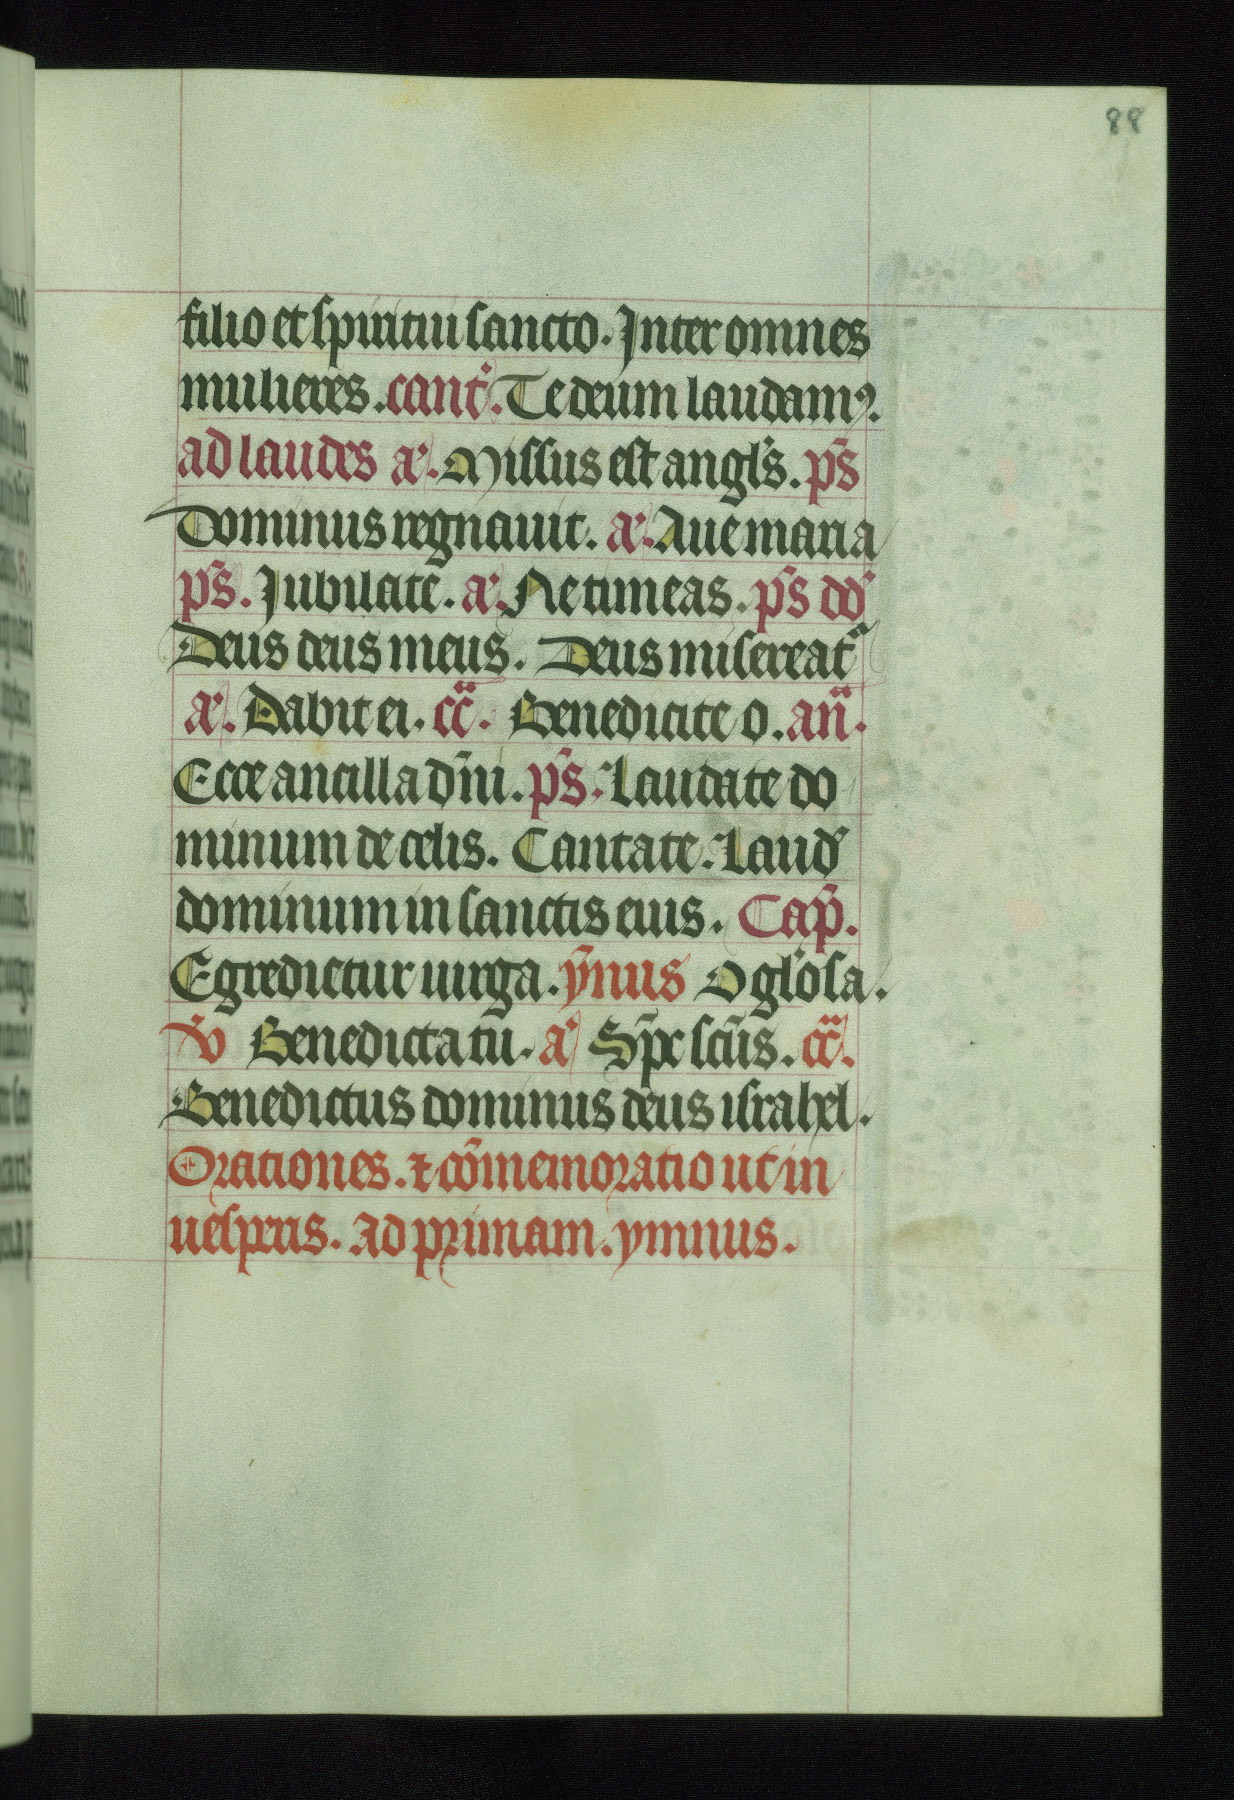 88
filio et spiritui sancto. Inter omnes
mulieres. cant᷑. Te deum laudamꝰ.
ad laudes a᷑. Missus est angl's. ps̄
Dominus regnauit. a᷑. Aue maria
ps̄. Iubilate. a᷑. Ne timeas. ps̄ dō
Deus deus meus. Deus misereat᷑
a᷑. Dabit ei. cc̄. Benedicite o. an̄.
Ecce ancilla dn̄i. ps̄. Laudate do
minum de celis. Cantate. Laud᷑
dominum in sanctis eius. Cap̄.
Egredietur uirga. ȳnus O gl'osa.
V̄ Benedicta tu. a᷑ Sp̄c scūs. cc̄.
Benedictus dominus deus israhel.
Orationes. ⁊ cōmemoratio ut in
uesperis. Ad primam. ymnus.